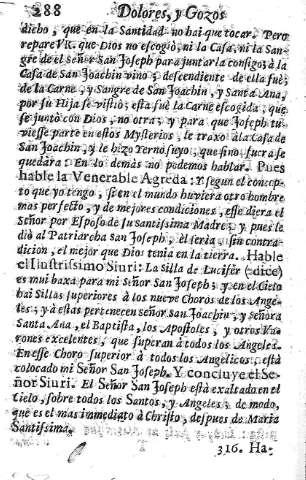 288 Dolores, y Gozos
dicho, que en la Santidad no hai que tocar. Pero
repare VR. que Dios no escogiò, ni la Casa, ni la San-
gre de el señor San Joseph para juntarla consigo; à la
Casa de San Joachin vino; descendiente de ella fuè;
de la Carne, y Sangre de San Joachin, y Santa Ana,
por su Hija se vistiò; esta fuè la Carne escogida, que
se juntò con Dios, no otra; y para que Joseph tu-
viesse parte en estos Mysterios, le traxo à la Casa de
San Joachin, y le hizo Yerno suyo, que sino fuera se
quedara: En lo demàs no podemos hablar. Pues
hable la Venerable Agreda: Y segun el concep-
to que yo tengo, si en el mundo huviera otro hombre
mas perfecto, y de mejores condiciones, esse diera el
Señor por Esposo de su Santissima Madre; y pues le
diò al Patriarcha San Joseph, èl seria, sin contra-
dicion, el mejor que Dios tenia en la tierra. Hable
el Ilustrissimo Siuri: La silla de Lucifèr (dice)
es mui baxa para mi Señor San Joseph; y en el Cielo
hai Sillas superiores à los nueve Choros de los Ange-
les; y à estas pertenecen señor San Joachin, y señora
Santa Ana, el Baptista, los Apostoles, y otros Va-
rones excelentes, que superan à todos los Angeles.
En esse Choro superior à todos los Angelicos, està
colocado mi Señor San Joseph. Y concluye el Se-
ñor Siuri. El Señor San Joseph està exaltado en el
Cielo, sobre todos los Santos, y Angeles; de modo,
que es el mas immediato à Christo, despues de Maria
Santissima.
316. Ha-